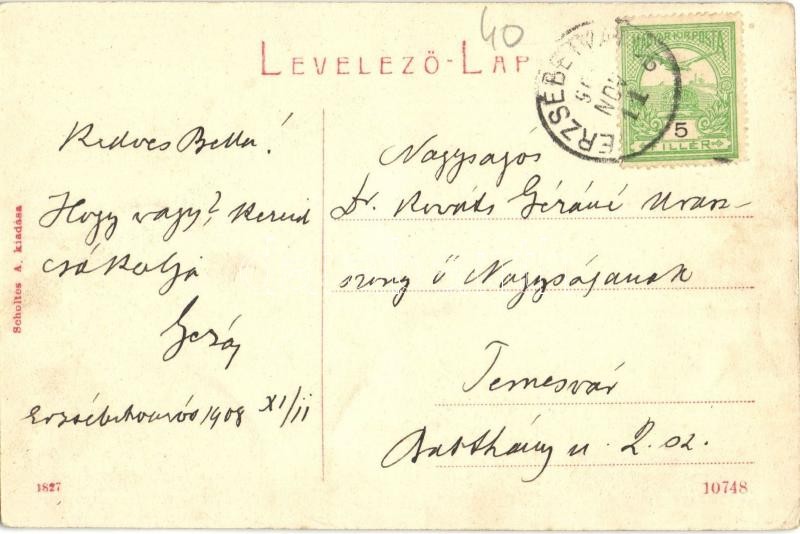 40
LEVELEZŐ-LAP
MAGYAR KIR. POSTA
5
FILLÉR
ERZSÉBETVÁROS
NOV
11
Kedves Bella!
Hogy vagy? Kezeid
csókolja
Géza
Erzsébetváros 1908 XI/11
Nagyságos
Dr. Kováts Gézáné Urasz-
szony ő Nagyságának
Temesvár
Batthány u. 2. sz.
Scholtes A. kiadása
1827
10748